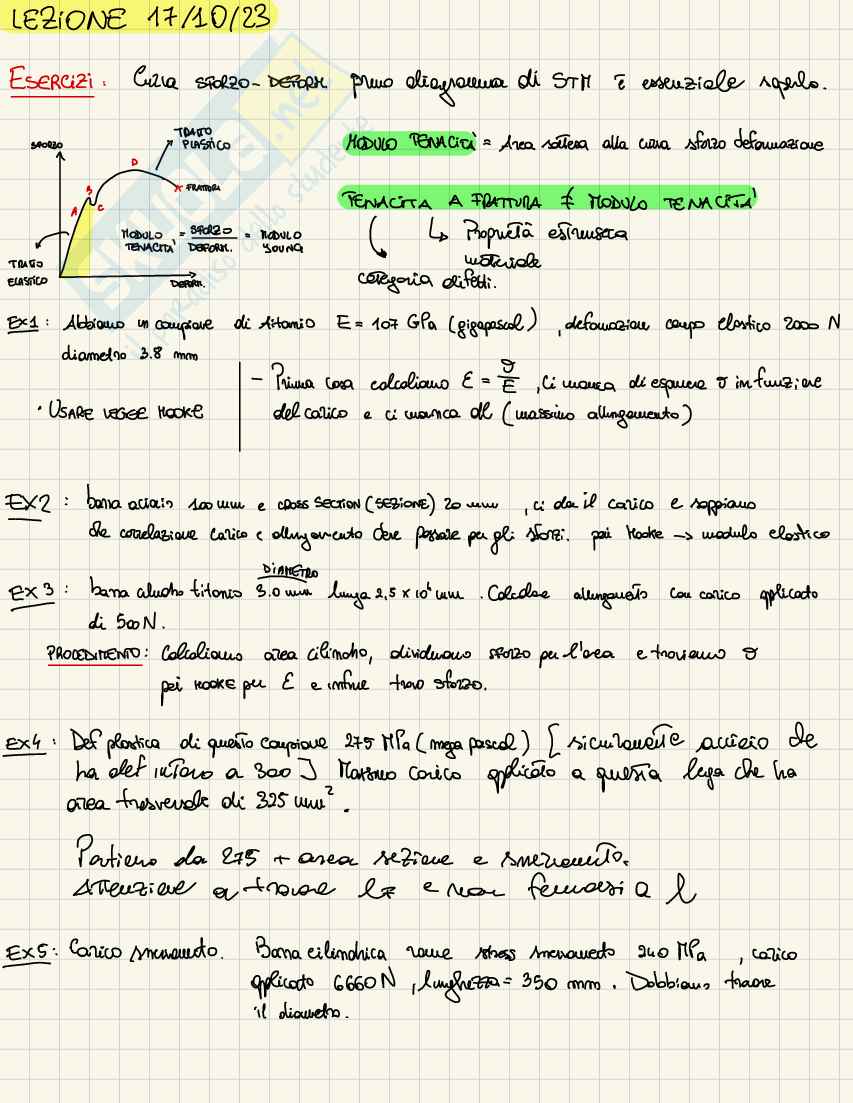 LEZIONE 17/10/23
ESERCIZI: Curva SFORZO-DEFORM. primo diagramma di STM è essenziale saperlo.
SFORZO
TRATTO PLASTICO
D
B
A
C
FRATTURA
MODULO TENACITÀ = SFORZO / DEFORM. = MODULO YOUNG
TRATTO ELASTICO
DEFORM.
MODULO TENACITÀ = Area sottesa alla curva sforzo deformazione
TENACITA A FRATTURA ≠ MODULO TENACITA'
↳ Proprietà estrinseca
materiale
categoria difetti.
EX1: Abbiamo un campione di titanio E = 107 GPa (gigapascal), deformazione campo elastico 2000 N
diametro 3.8 mm
• USARE LEGGE HOOKE
- Prima cosa calcoliamo Ɛ = σ/E, ci manca di esprimere σ in funzione
del carico e ci manca dl (massimo allungamento)
EX2: barra acciaio 100 mm e CROSS SECTION (SEZIONE) 20 mm, ci da il carico e sappiamo
che correlazione carico e allungamento deve passare per gli sforzi. poi Hooke → modulo elastico
EX3: barra titanio DIAMETRO 3.0 mm lunga 2,5 x 10⁴ mm. Calcolare allungamento con carico applicato
di 500 N.
PROCEDIMENTO: Calcoliamo area cilindro, dividiamo SFORZO per l'area e troviamo σ
poi HOOKE per Ɛ e infine trovo sforzo.
EX4: Def plastica di questo campione 275 MPa (mega pascal) [sicuramente acciaio che
ha def intorno a 300] Massimo carico applicato a questa lega che ha
area trasversale di 325 mm².
Partiamo da 275 + area sezione e snervamento.
Attenzione a trovare lF e non fermarsi a l
EX5: Carico snervamento. Barra cilindrica rame stress snervamento 240 MPa, carico
applicato 6660 N, lunghezza = 350 mm. Dobbiamo trovare
il diametro.
SKUOLA.net
il paradiso dello studente